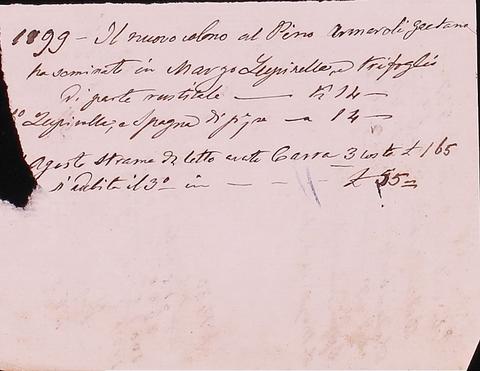 1899 – Il nuovo colono al Pino Gaetano
ha seminato in Marzo Lupinella, e trifoglio
di parte rusticale — K 14 —
Lupinella, e Spagna di — a 14 —
Agosto strame di letto Carra 3 costo £ 165
s'addebita il 3º in — — — £ 55 =